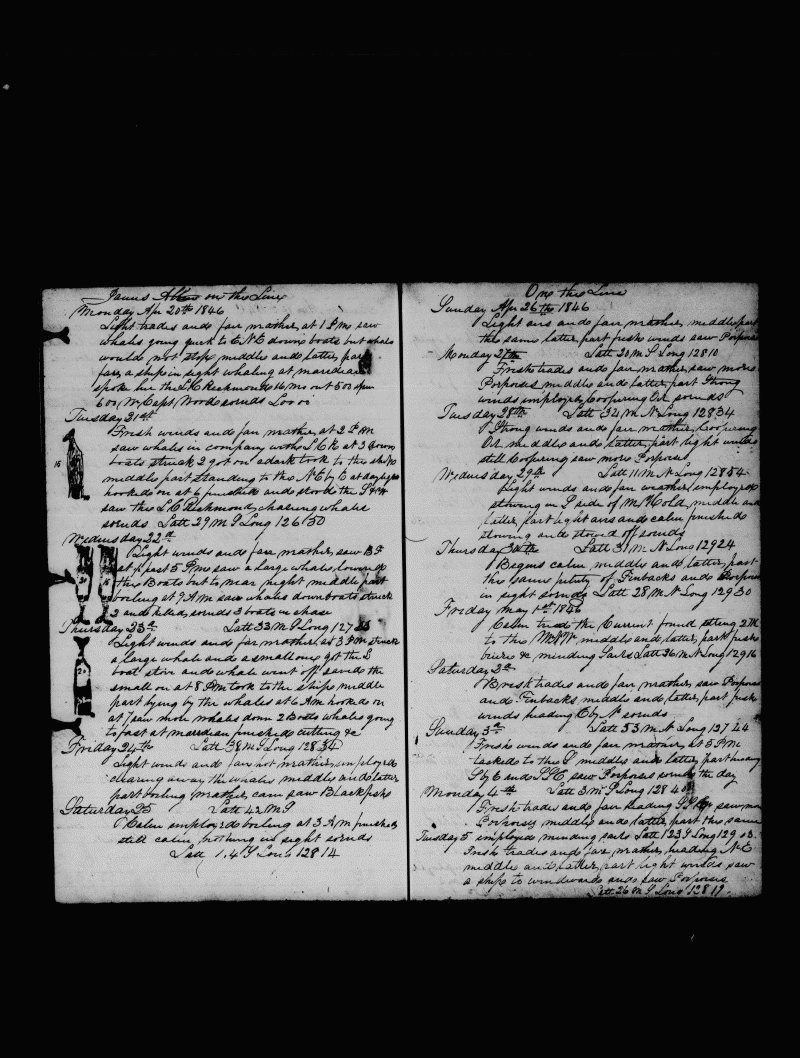 James Allen on the Line
Monday Apr 20th 1846
Light trades and fair weather, at 1 PM saw
whales going quick to ENE down boats but whales
would not stop middle and latter part
fair, a ship in sight whaling at meridian
spoke her the L C Richmond 16 m out 500 spm
600 W Capt Wood sounds
Tuesday 21st
Fresh winds and fair weather at 2 PM
saw whales in company with L C R at 3 down
boats struck 2 got one a dark took to the ship
middle part standing to the NE by E at daylight
hooked on at 6 finished and stood the
saw the L C Richmond chasing whales
sounds Latt 29 M S Long 126 50
Wednesday 22d
Light winds and fair weather saw BF
at past 5 PM saw a large whale, lowered
the Boats but to near night middle part
boiling at 9 AM saw whales down boats struck
2 and killed, sounds 3 boats in chase
Thursday 23d Latt 33 M S Long 127
Light winds and fair weather at 3 PM struck
a large whale and a small one got the L
boat stove and whale went off saved the
small one at 8 PM took to the ship middle
part lying by the whales at 6 AM hooked on
at 7 saw more whales down 2 Boats whales going
to fast at meridian finished cutting &c
Friday 24th Latt 38 M S Long 128 34
Light winds and fair hot weather, employed
clearing away the whales middle and latter
part boiling weather calm saw Blackfish
Saturday 25 Latt 42 M S
Calm employed boiling at 3 AM finished
still calm, nothing in sight sounds
Latt 1.4 S Long 128 14
15
20
15
20
On the Line
Sunday Apr 26th 1846
Light airs and fair weather, middle part
the same latter part fresh winds saw Porpoises
Monday 27th Latt 20 M S Long 128 10
Fresh trades and fair weather, saw more
Porpoises middle and latter part strong
winds employed Coopering Oil sounds
Tuesday 28th Latt 32 M N Long 128 34
Strong winds and fair weather, Coopering
Oil middle and latter part light winds
still Coopering saw more Porpoises
Wednesday 29th Latt 11 M N Long 128 54
Light winds and fair weather, employed
stowing in side of M Hold, middle and
latter part light airs and calm finished
stowing and stowed off sounds
Thursday 30th Latt 31 M N Long 129 24
Begins calm middle and latter part
the same plenty of Finbacks and Porpoises
in sight sounds Latt 28 M N Long 129 30
Friday May 1st 1846
Calm tried the Current found setting 2 M
to the WNW middle and latter part fresh
breeze & mending Sails Latt 36 M N Long 129 16
Saturday 2d
Brisk trades and fair weather, saw Porpoises
and Finbacks middle and latter part fresh
winds heading E by N sounds
Sunday 3d Latt 53 M N Long 127 44
Fresh winds and fair weather, at 3 PM
tacked to the S middle and latter part heading
S by E and SSE, saw Porpoises the day
Monday 4th Latt 3 M S Long 128 40
Fresh trades and fair heading saw more
Porpoises middle and latter part the same
Tuesday 5 employed mending sails Latt 1 23 S Long 129 03
Fresh trades and fair weather, heading NE
middle and latter part light winds saw
a ship to windward and saw Porpoises
Latt 36 M S Long 128 19